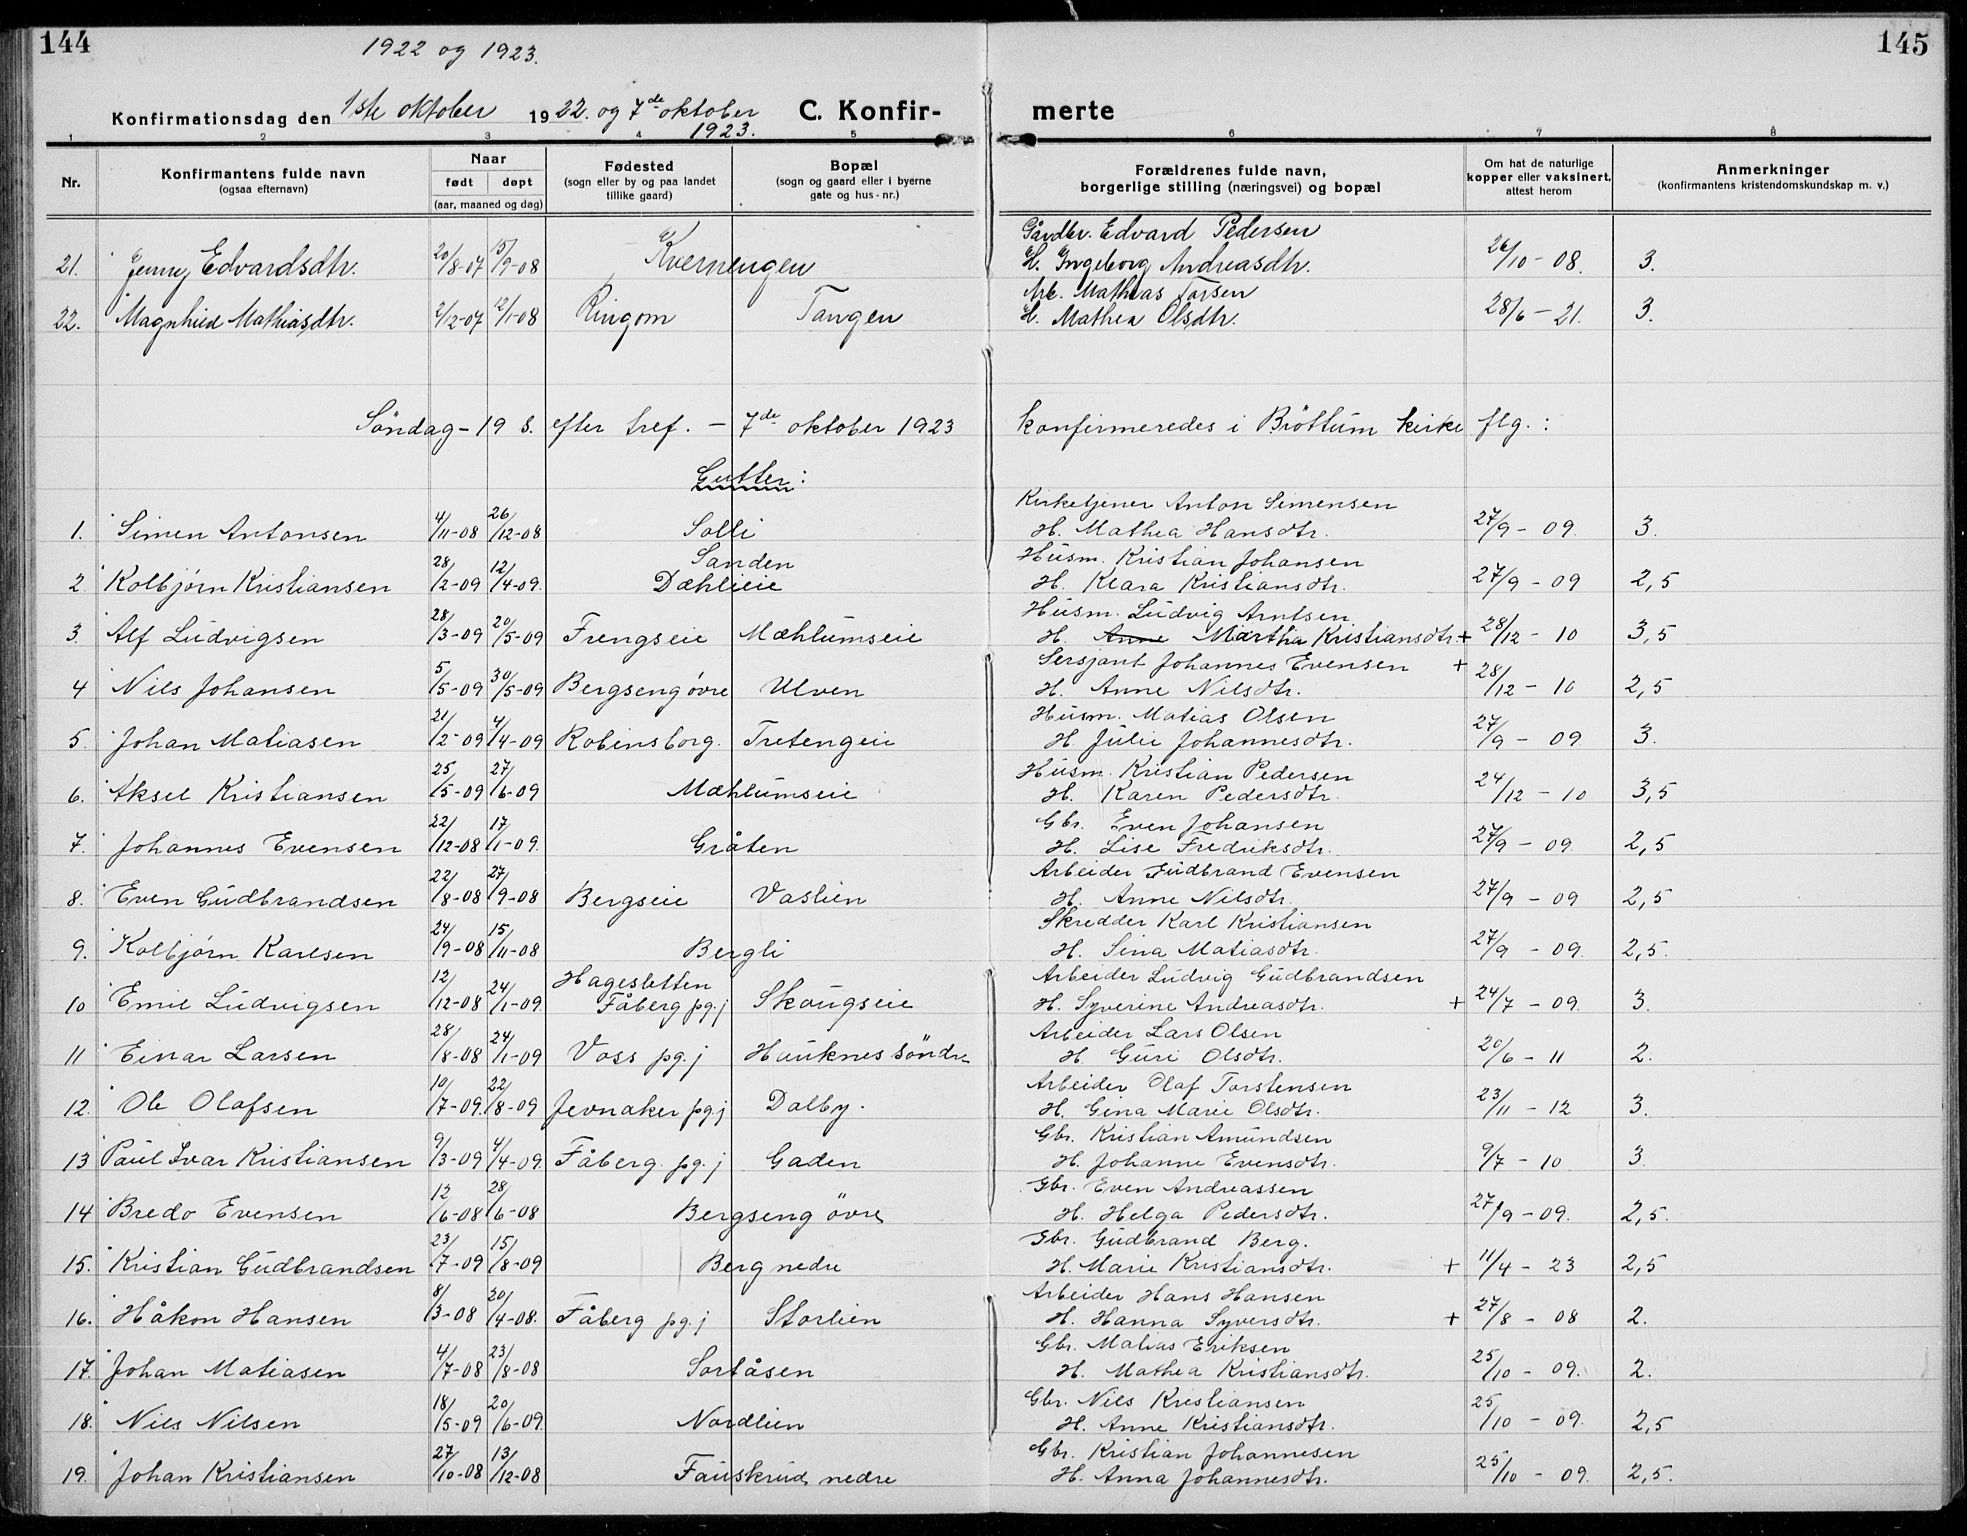 144
1922 og 1923.
145
Konfirmationsdag den 1ste oktober 1922. og 7de oktober 1923.
C. Konfir-
merte
1 2 3 4 5 6 7 8
Nr. Konfirmantens fulde navn (ogsaa efternavn) Naar født døpt (aar, maaned og dag) Fødested (sogn eller by og paa landet tillike gaard) Bopæl (sogn og gaard eller i byerne gate og hus-nr.) Forældrenes fulde navn, borgerlige stilling (næringsvei) og bopæl Om hat de naturlige kopper eller vaksinert, attest herom Anmerkninger (konfirmantens kristendomskundskap m. v.)
Gårdbr. Edvard Pedersen
21. Jenny Edvardsdtr. 20/8-07 15/9-08 Kvernengen H. Ingeborg Andreasdtr. 26/10-08. 3.
Arb. Mathias Torsen
22. Magnhild Mathiasdtr. 2/12-07 12/1-08 Ringom Tangen H. Mathea Olsdtr. 28/6-21. 3.
Söndag - 19 s. efter tref. - 7de oktober 1923 konfirmeredes i Bröttum kirke flg. :
Gutter:
Kirketjener Anton Simensen
1. Simen Antonsen 4/11-08 26/12-08 Solli H. Mathea Hansdtr. 27/9-09. 3.
Sanden Husm. Kristian Johansen
2. Kolbjørn Kristiansen 28/2-09 12/4-09. Dæhlieie H. Klara Kristiansdtr. 27/9-09 2,5
Husm. Ludvig Arntsen
3. Alf Ludvigsen 28/3-09 20/5-09 Frengseie Mæhlumseie H. Anne Martha Kristiansdtr. + 28/12-10 3,5
Sersjant Johannes Evensen +
4 Nils Johansen 5/5-09 30/5-09 Bergseng övre Ulven H. Anne Nilsdtr. 28/12-10 2,5
Husm. Matias Olsen
5. Johan Matiasen 21/2-09 4/4-09 Robinsborg. Tretengeie H. Julie Johannesdtr. 27/9-09 3.
Husm. Kristian Pedersen
6. Aksel Kristiansen 25/5-09 27/6-09 Mæhlumseie H. Karen Pedersdtr. 24/12-10 3,5
Gbr. Even Johansen
7. Johannes Evensen 22/12-08 17/1-09. Gråten H. Lise Fredriksdtr. 27/9-09. 2,5
Arbeider Gudbrand Evensen
8. Even Gudbrandsen 22/8-08 27/9-08 Bergseie Vaslien H. Anne Nilsdtr. 27/9-09 2,5
Skredder Karl Kristiansen
9. Kolbjørn Karlsen 24/9-08 15/11-08 Bergli H. Sina Matiasdtr. 27/9-09. 2,5.
Hagesletten Arbeider Ludvig Gudbrandsen
10 Emil Ludvigsen 12/12-08 24/1-09. Fåberg pg.j Skougseie H. Syverine Andreasdtr. + 24/7-09. 3.
Arbeider Lars Olsen
11 Einar Larsen 28/8-08 24/1-09 Voss pg.j Hauknes söndre H. Guri Olsdtr. 20/6-11 2.
Arbeider Olaf Torstensen
12. Ole Olafsen 10/7-09. 22/8-09 Jevnaker pg.j Dalby. H. Gina Marie Olsdtr. 23/11-12 3.
Gbr. Kristian Amundsen
13 Paul Ivar Kristiansen 9/3-09 4/4-09. Fåberg. pg.j Gaden H. Johanne Evensdtr. 9/7-10 3.
Gbr. Even Andreassen
14 Bredo Evensen 12/6-08 28/6-08 Bergseng övre H. Helga Pedersdtr. 27/9-09. 2,5.
Gbr. Gudbrand Berg.
15. Kristian Gudbrandsen 23/7-09 15/8-09 Berg nedre H. Marie Kristiansdtr. + 11/4-23 2,5
Arbeider Hans Hansen
16. Håkon Hansen 8/3-08 20/4-08. Fåberg pg.j Storlien H. Hanna Syversdtr. + 27/8-08 2.
Gbr. Matias Eriksen
17. Johan Matiasen 4/7-08 23/8-08 Sortåsen H. Mathea Kristiansdtr. 25/10-09. 2.
Gbr. Nils Kristiansen
18. Nils Nilsen 18/5-09 20/6-09. Nordlien H. Anne Kristiansdtr. 25/10-09. 2,5
Gbr. Kristian Johannesen
19. Johan Kristiansen 27/10-08 13/12-08 Fauskrud nedre H. Anna Johannesdtr. 25/10-09. 2,5.